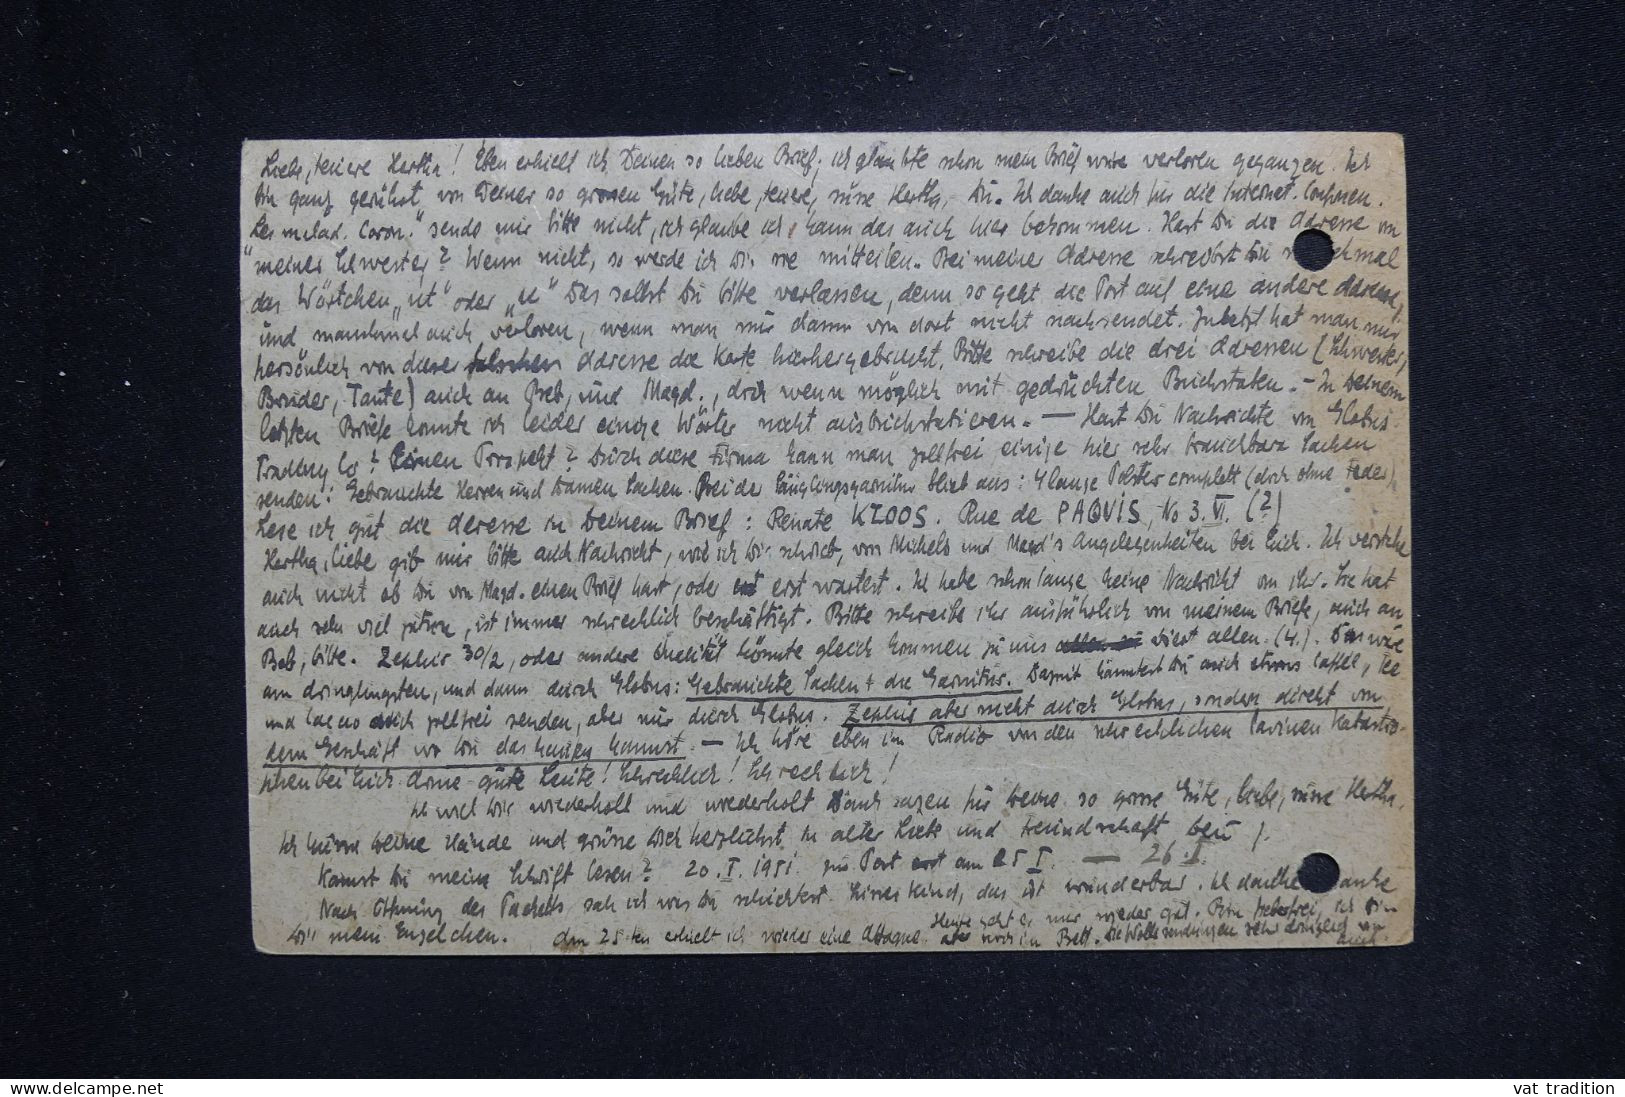 Liebe, teuere Hertha! Eben erhielt ich Deinen so lieben Brief, ich glaubte schon mein Brief wäre verloren gegangen. Ich
bin ganz gerührt von Deiner so grossen Güte, liebe, teuere, süsse Hertha, Du. Ich danke auch für die Internat.
sende mir bitte nicht, ich glaube ich kann das auch hier bekommen. Hast Du die Adresse von
meiner Schwester? Wenn nicht, so werde ich Dir sie mitteilen. Bei meiner Adresse schreibst Du
das Wörtchen „ut" oder „u" Das sollst Du bitte verlassen, denn so geht die Post auf eine andere Adresse,
und manchmal auch verloren, wenn man mir dann von dort nicht nachsendet. Zuletzt hat man mir
persönlich von dieser falschen Adresse die Karte hierhergebracht. Bitte schreibe die drei Adressen (Schwester,
Bruder, Tante) auch an Beb, und Magd., doch wenn möglich mit gedruckten Buchstaben. – In Deinem
letzten Briefe konnte ich leider einige Wörter nicht ausbuchstabieren. — Hast Du Nachricht von Globus
Trading Co? Einen Prospekt? Durch diese Firma kann man zollfrei einige hier sehr brauchbare Sachen
senden: Gebrauchte Herren und Damen Sachen. Bei der Säuglingsgarnitur blieb aus: 1 Polster complett (doch ohne Feder).
Lese ich gut die Adresse in Deinem Brief: Renate KLOOS. Rue de PAQUIS, No 3. VI. (?)
Hertha, liebe gib mir bitte auch Nachricht, wie ich Dir schrieb, von Michels und Magd's Angelegenheiten bei Euch. Ich verstehe
auch nicht ob Du von Magd. einen Brief hast, oder erst wartest. Ich habe schon lange keine Nachricht von ihr. Sie hat
auch sehr viel zu tun, ist immer schrecklich beschäftigt. Bitte schreibe ihr ausführlich von meinem Briefe, auch an
Beb, bitte. Zephir 30/2, oder andere Qualität könnte gleich kommen zu uns allen. (4.). Das wäre
am dringlingsten, und dann durch Globus: Gebrauchte Sachen + die Garnitur. Damit könntest Du auch etwas Caffee, Tee
und Cacao auch zollfrei senden, aber nur durch Globus. Zephir aber nicht durch Globus, sondern direkt von
dem Geschäft wo Du das kaufen kannst. — Ich höre eben im Radio von den schrecklichen Lavinen Katastro-
phen bei Euch. Arme gute Leute! Schrecklich! Schrecklich!
Ich will Dir wiederholt und wiederholt Dank sagen für Deine so grosse Güte, liebe, süsse Hertha.
Ich küsse Deine Hände und grüsse Dich herzlichst in alter Liebe und Freundschaft
Kannst Du meine Schrift lesen? 20. I. 1951. zur Post erst am 25 I. — 26. I.
Nach Öffnung des Packetts sah ich was Du schicktest. Kind, das ist wunderbar. Ich danke
Dir mein Engelchen. Am 25-ten erhielt ich wieder eine Attaque. Heute geht es mir wieder gut. Bin fieberfrei, ich bin
aber noch im Bett. Die Wollsendungen sehr dringlich
auch.
delcampe.net
vat tradition